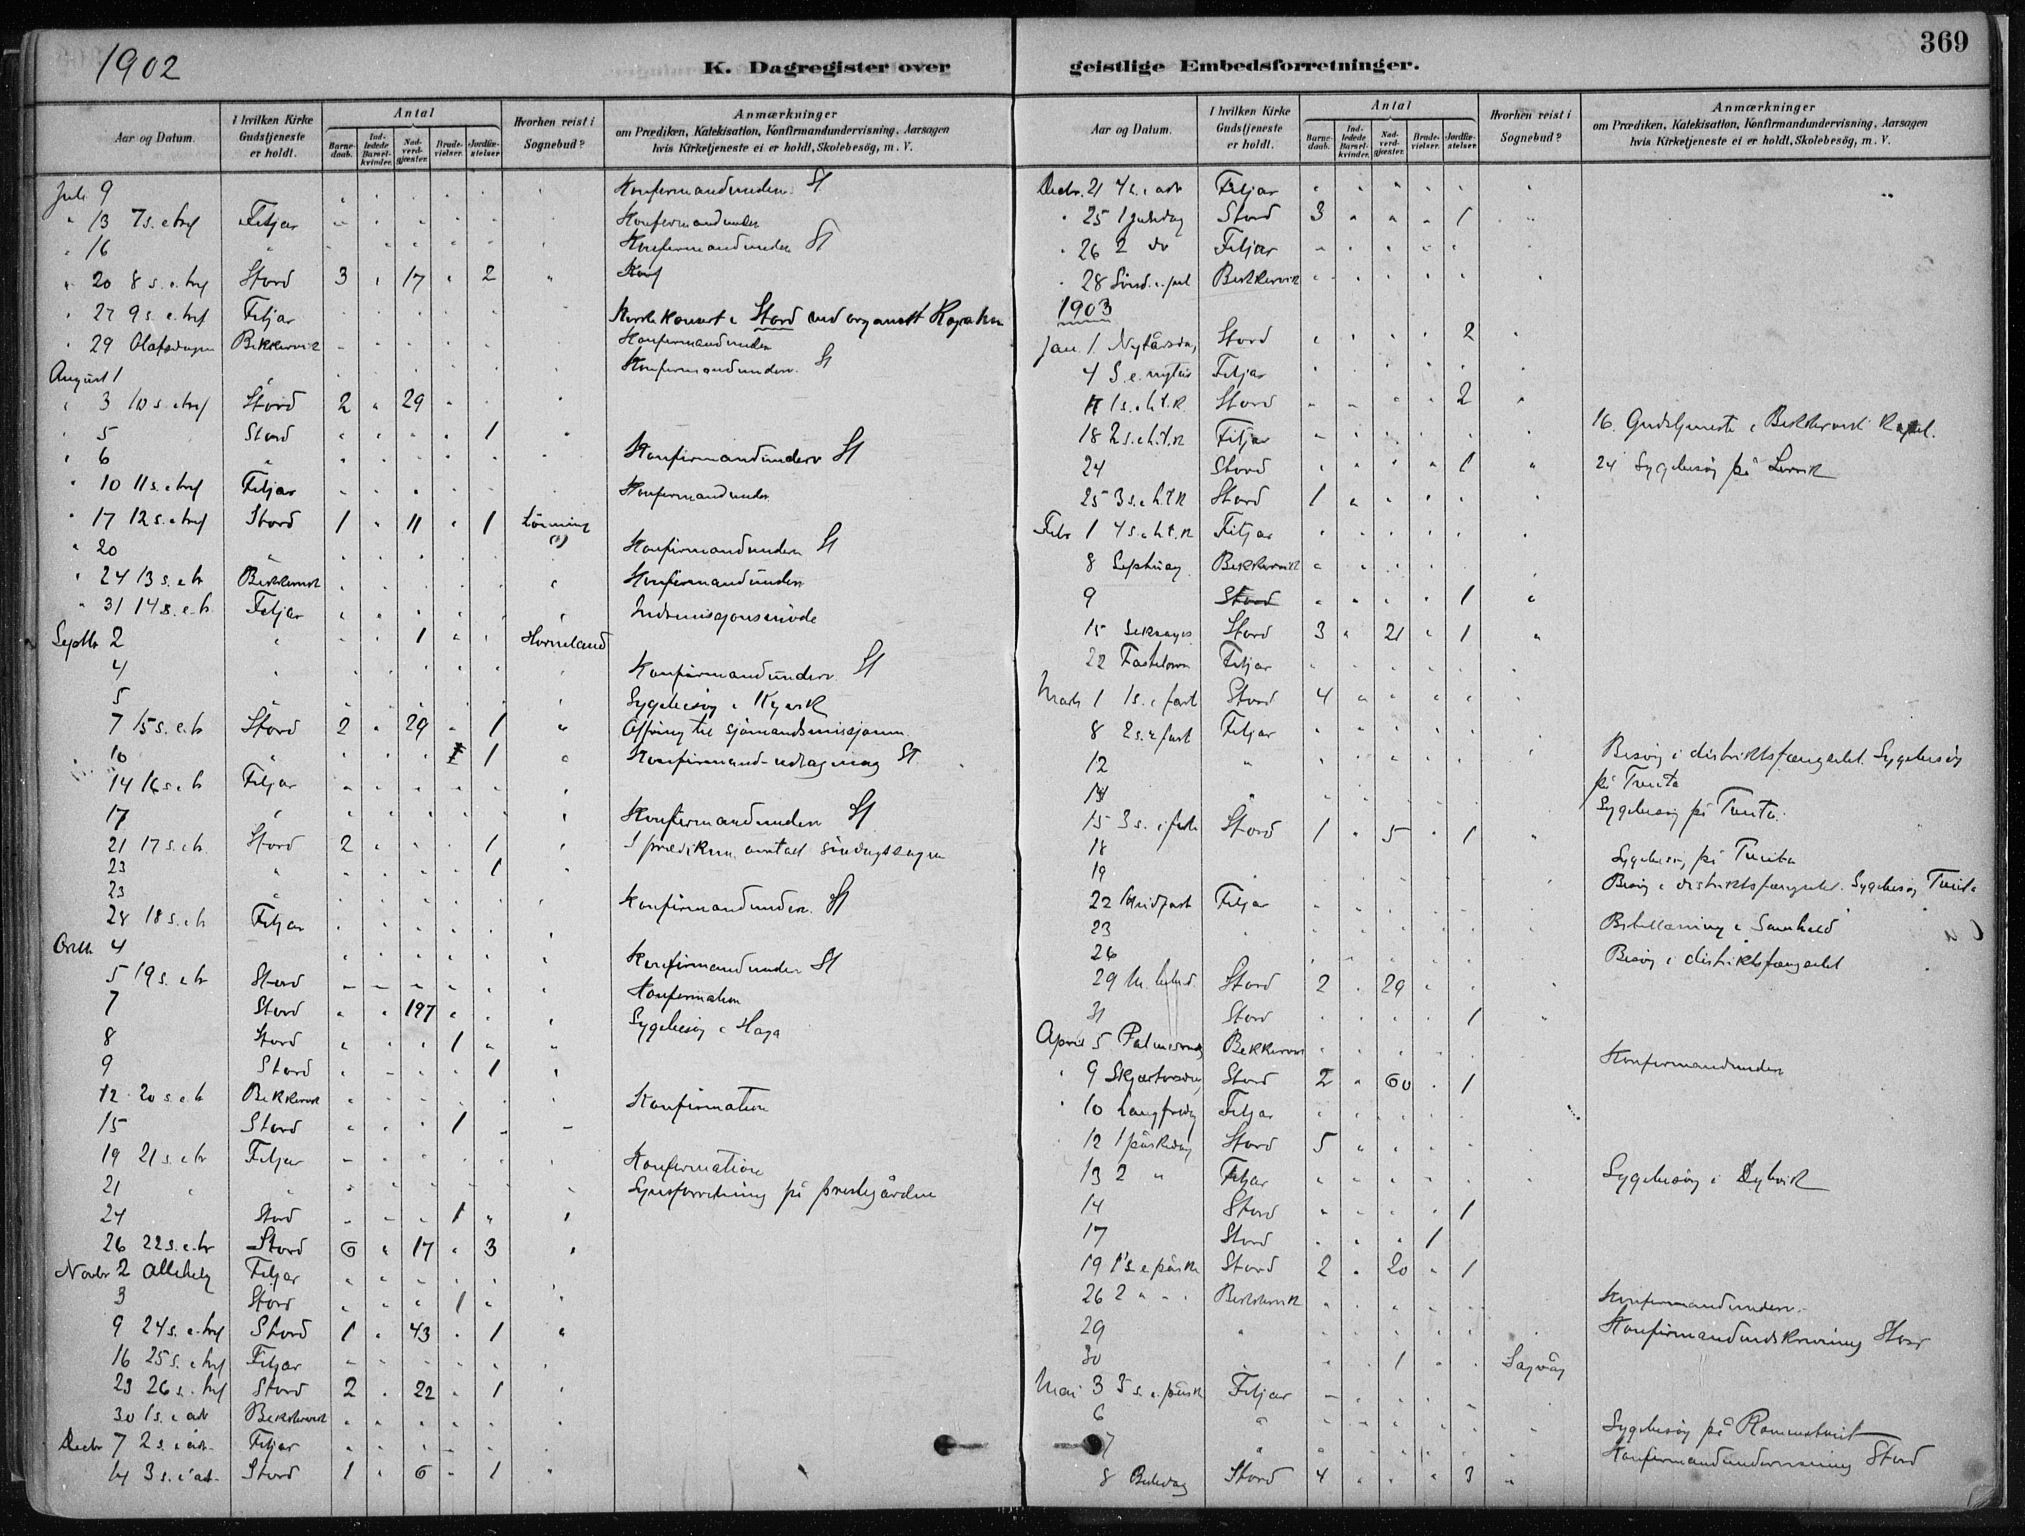 1902
K. Dagregister over
Aar og Datum.
I hvilken Kirke Gudstjeneste er holdt.
Antal
Barne-daab.
Ind-ledede Barsel-kvinder.
Nad-verd-gjæster.
Brude-vielser.
Jordfæ-stelser
Hvorhen reist i Sognebud?
Anmærkninger
om Prædiken, Katekisation, Konfirmandundervisning, Aarsagen
hvis Kirketjeneste ei er holdt, Skolebesög, m. V.
Juli 9 Konfirmandunderv. St
" 13 7 s. e. tref Fitjar Konfirmandunder
" 16 " Konfirmandunder St
" 20 8 s. e. tref Stord 3 " 17 " 2 "
" 27 9 s. e. tref Fitjar Kirkekonsert i Stord ved organist
" 29 Olafsdagen Bekkervik Konfirmandunder
August 1 Konfirmandunderv. St
" 3 10 s. e. tref Stord 2 " 29
" 5 Stord 1
" 6 " Konfirmandunderv St
" 10 11 s. e. tref Fitjar Konfirmandunder
" 17 12 s. e. tref Stord 1 " 11 " 1 Lönning
" 20 " Konfirmandunderv St
" 24 13 s. e. tr Bekkervik Konfirmandunderv
" 31 14 s. e. tr. Fitjar Indremissjonsmöde
Septbr 2 " 1 Horneland
4 Konfirmandunderv. St
5 Sygebesög i
7 15 s. e. tr Stord 2 " 29 " 1 " Offring til sjömandsmissjonen
10 " 1 Konfirmand-udtagning St.
14 16 s. e. tr Fitjar
17 " Konfirmandunderv St
21 17 s. e. tr. Stord 2 1
23 " 1
23 " Konfirmandunderv. St
28 18 s. e. tr Fitjar
Oktb 4 Konfirmandunder St
5 19 s. e. tr Stord Konfirmation
7 Stord 197 Sygebesög i Haga
8 Stord 1
9 Stord 1
12 20 s. e. tr Bekkervik Konfirmation
15 Stord 1
19 21 s. e. tr Fitjar Konfirmation
21 " Synsforretning på prestegården
24 Stord 1
26 22 s. e. tr Stord 6 " 17 " 3 "
Novbr 2 Allehelg Fitjar
3 Stord 1
9 24 s. e. tref Stord 1 " 43 " 1 "
16 25 s. e. tref Fitjar
23 26 s. tref Stord 2 " 22 " 1
30 1 s. i adv Bekkervik
Decbr 7 2 s. i adv. Fitjar
14 3 s. i adv. Stord 1 " 6 " 1 "
369
geistlige Embedsforretninger.
Aar og Datum.
I hvilken Kirke Gudstjeneste er holdt.
Antal
Barne-daab.
Ind-ledede Barsel-kvinder.
Nad-verd-gjæster.
Brude-vielser.
Jordfæ-stelser
Hvorhen reist i Sognebud?
Anmærkninger
om Prædiken, Katekisation, Konfirmandundervisning, Aarsagen
hvis Kirketjeneste ei er holdt, Skolebesög, m. V.
Decbr. 21 4 s. i adv Fitjar
" 25 1 juledag Stord 3 " " " 1
" 26 2 do Fitjar
" 28 Sönd. e. jul Bekkervik
1903
Jan. 1. Nytårsdag Stord 2
4 S. e. nytår Fitjar
11 1 s. e. h. t. k. Stord 2 16. Gudstjeneste i Bekkervik Kapel.
18 2 s. e. h. t. k Fitjar
24 Stord 1 24 Sygebesög på Lervik
25 3 s. e. h. t. k Stord 1
Febr 1 4 s. e. h. t. k Fitjar
8 Septuag. Bekkervik
9 Stord 1
15 Seksages Stord 3 " 21 " 1 "
22 Fastelavn Fitjar
Marts 1 1 s. i fast Stord 4
8 2 s. i fast Fitjar
12 " Besög i distriktsfængselet. Sygebesög
på Tveita
14 " Sygebesög på Tveita.
15 3 s. i faste Stord 1 " 5 " 1
18 Sygebesög på Tveita
19 Besög i distriktsfængselet. Sygebesög Tveita
22 Midfast Fitjar
23 Bibellæsning i Samhold
26 Besög i distriktsfængselet
29 M. bebud. Stord 2 " 29
31 Stord 1
April 5 Palmesöndag Bekkervik Konfirmandunder
" 9 Skjærtorsdag Stord 2 " 60 " 1
" 10 Langfredag Fitjar
12 1 påskedag Stord 5
13 2 " Fitjar Sygebesög i Dybvik
14 Stord 1
17 Stord 1
19 1 s. e påske Stord 2 " 20 " 1
26 2 " " " Bekkervik Konfirmandunderv.
29 " Konfirmandindskrivning Stord
30 1 Sagvåg
Mai 3 3 s. e. påske Fitjar
6 " Sygebesög på
7 Konfirmandundervisning Stord
8 Bededag Stord 4 " " " 3 "